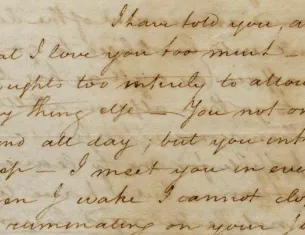 I have told you, a
at I love you too much —
oughts too intirely to allow
y thing else — You not on
nd all day; but you int
eep — I meet you in eve
en I wake I cannot clo
ruminating on your